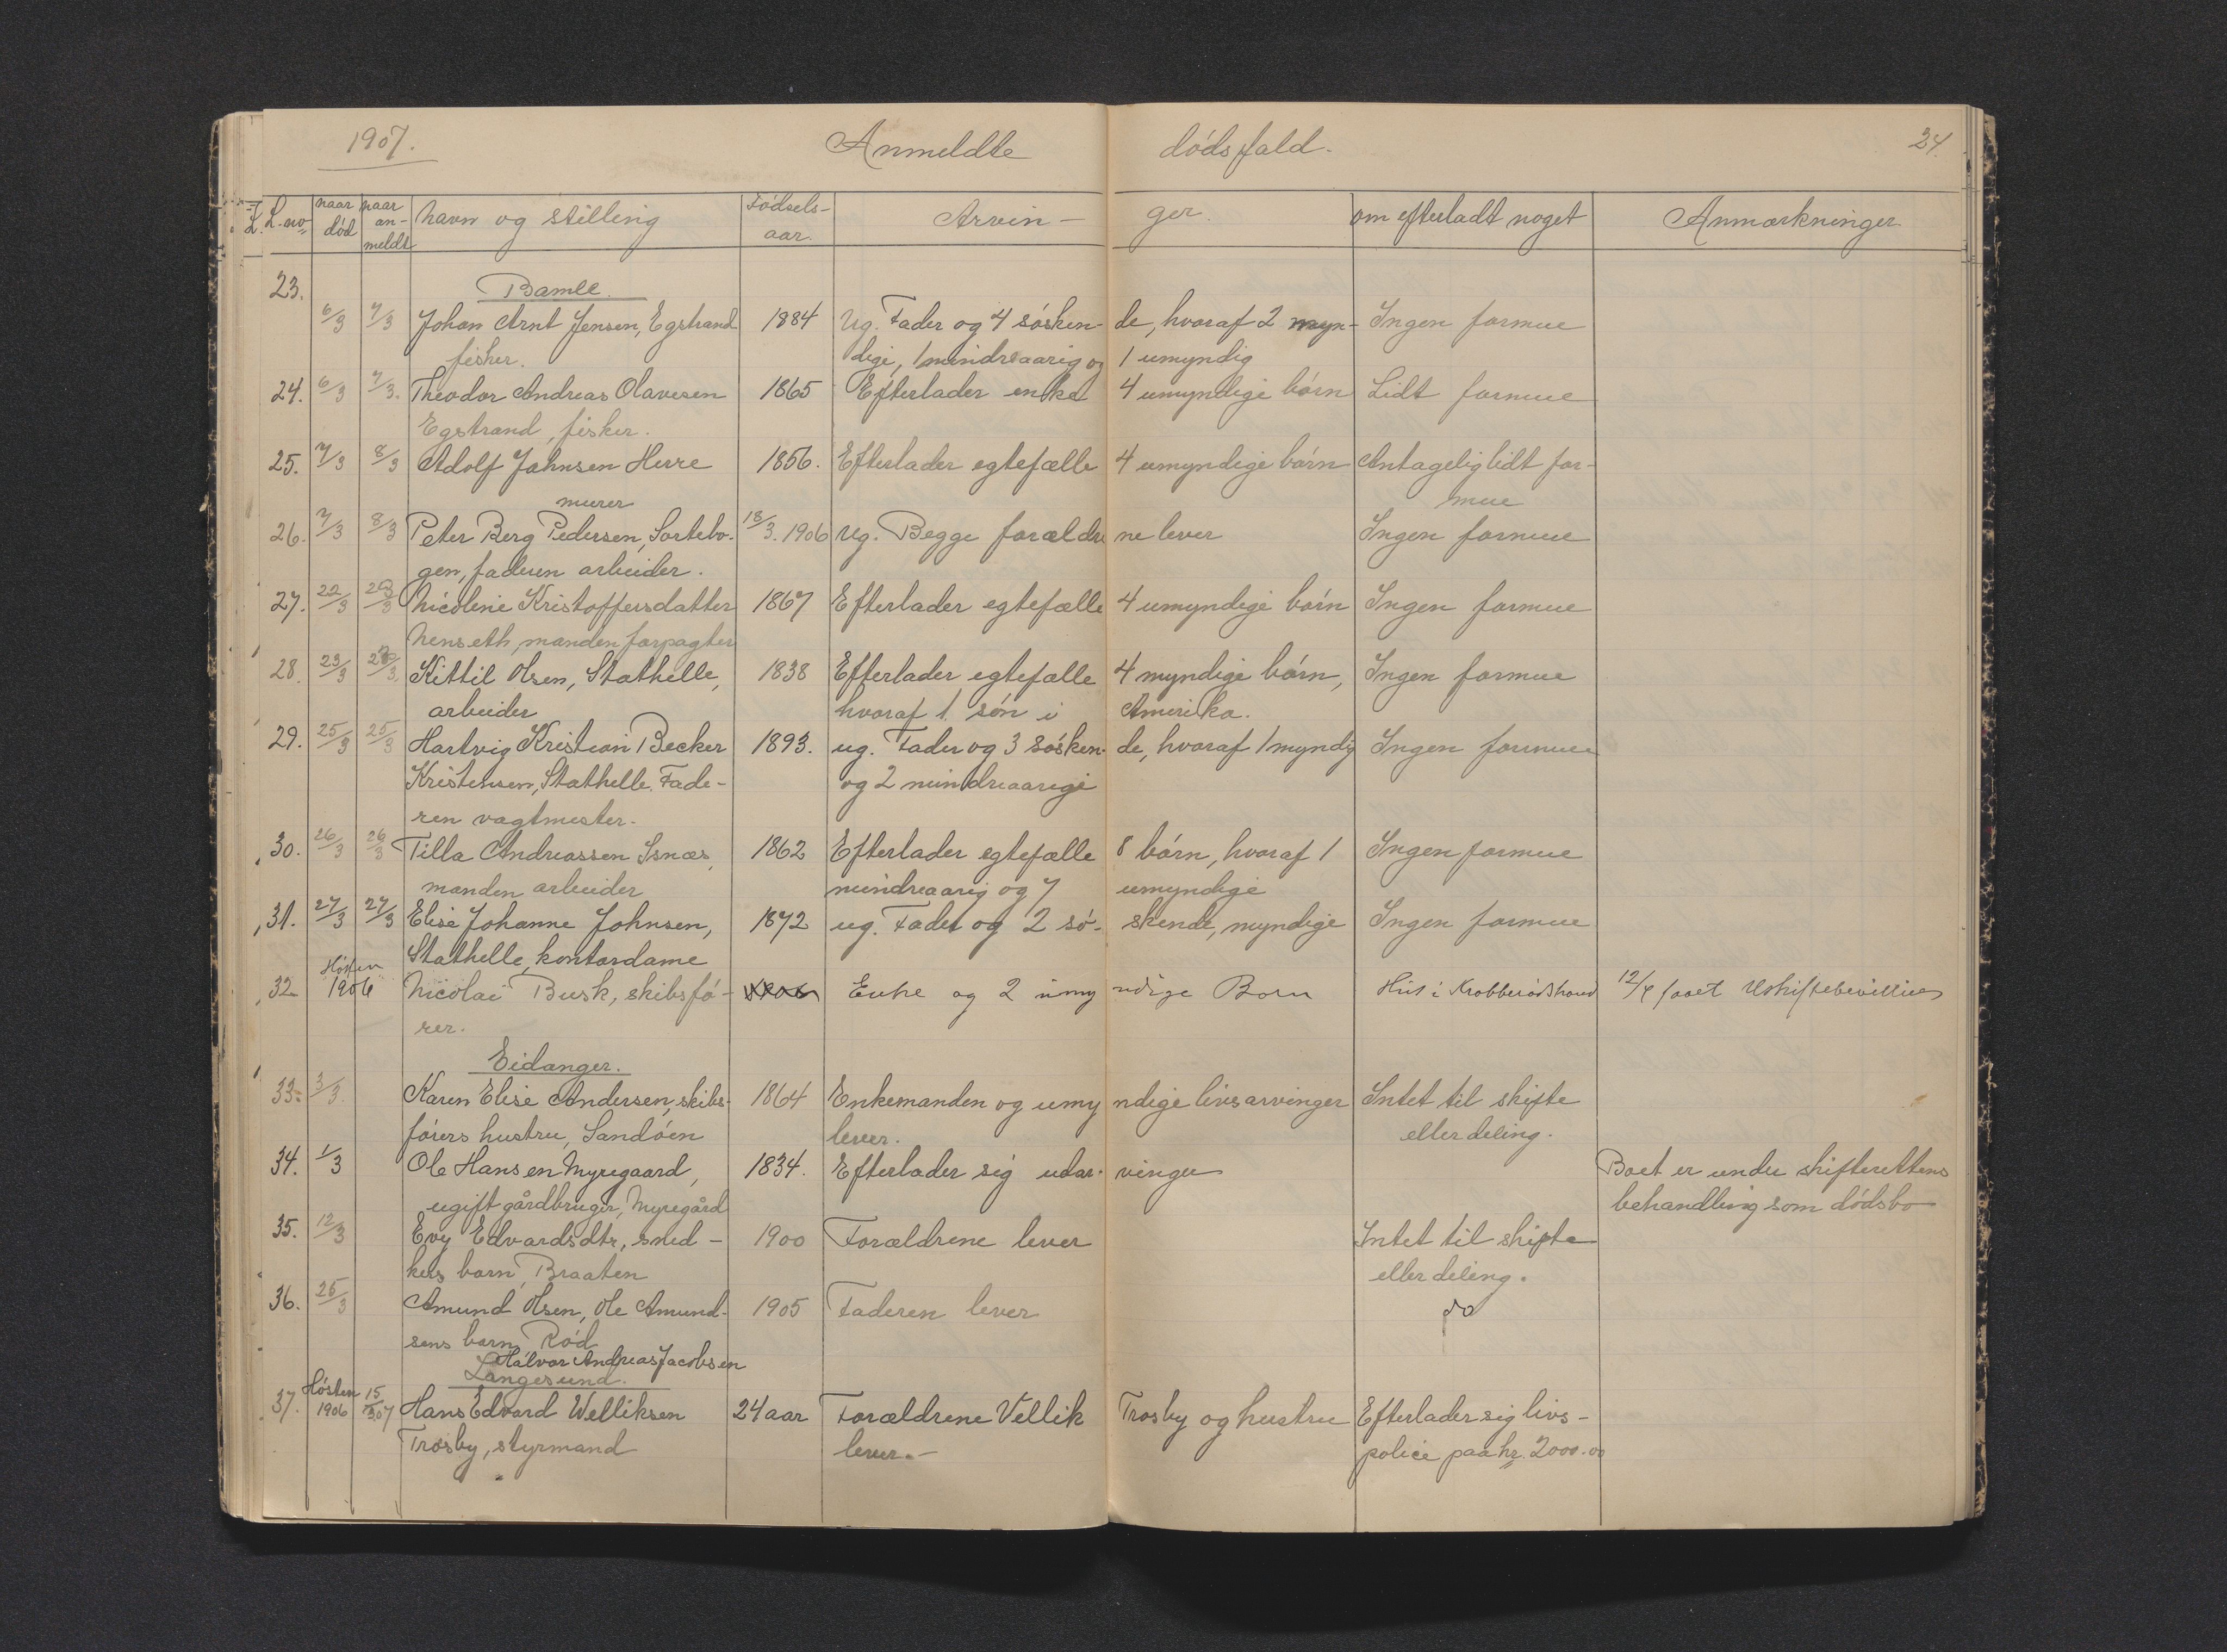 1907. Anmeldte dödsfald. 24.
L. no naar död naar an-meldt navn og stilling Fødsels-aar. Arvin-ger. om efterladt noget Anmærkninger.
Bamle.
23. 6/3 7/3 Johan Arnt Jensen, Egstrand 1884 Ug. Fader og 4 sösken-de, hvoraf 2 myn- Ingen formue
fisker. dige, 1 mindreaarig og 1 umyndig
24. 6/3 7/3. Theodor Andreas Olavesen 1865 Efterlader enke 4 umyndige börn Lidt formue
Egstrand, fisker.
25. 7/3 8/3 Adolf Johnsen Herre 1856. Efterlader egtefælle 4 umyndige börn Antagelig lidt for-
murer mue
26. 7/3 8/3 Peter Berg Pedersen, Sortebo- 18/3. 1906 Ug. Begge forældrene lever Ingen formue
gen, faderen arbeider.
27. 22/3 23/3 Nicoline Kristoffersdatter 1867 Efterlader egtefælle 4 umyndige börn Ingen formue
Nenseth, manden forpagter
28. 23/3 Kittil Olsen, Stathelle, 1838 Efterlader egtefælle 4 myndige börn, Ingen formue
arbeider hvoraf 1 sön i Amerika.
29. 25/3 25/3 Hartvig Kristian Becker 1893. ug. Fader og 3 sösken-de, hvoraf 1 myndig Ingen formue
Kristensen, Stathelle. Fade- og 2 mindreaarige
ren vagtmester.
30. 26/3 26/3 Tilla Andreassen Isnæs, 1862 Efterlader egtefælle 8 börn, hvoraf 1 Ingen formue
manden arbeider mindreaarig og 7 umyndige
31. 27/3 27/3 Elise Johanne Johnsen, 1872 ug. Fader og 2 sö-skende, myndige Ingen formue
Stathelle, kontordame
32 Hösten 1906 Nicolai Busk, skibsfö- Enke og 2 umyndige Born Hus i Krobberødstrand 12/4 faaet Uskiftebevilling
rer.
Eidanger.
33. 3/3. Karen Elise Andersen, skibs- 1864 Enkemanden og umyndige livsarvinger Intet til skifte
förers hustru, Sandöen lever. eller deling.
34. 1/3 Ole Hansen Myregaard, 1834. Efterlader sig udar-vinger Boet er under skifterettens
ugift gårdbruger, Myregård behandling som dödsbo
35. 12/3 Evy Edvardsdtr, sned- 1900 Forældrene lever Intet til skifte
kers barn, Braaten eller deling.
36. 25/3 Amund Olsen, Ole Amund- 1905 Faderen lever do
sens barn, Röd
Halvor Andreas Jacobsen
Langesund.
37. Hösten 1906 15/3 07 Hans Edvard Welliksen 24 aar Forældrene Vellik Trosby og hustru Efterlader sig livs-
Trosby, styrmand lever.- police paa kr. 2000.00